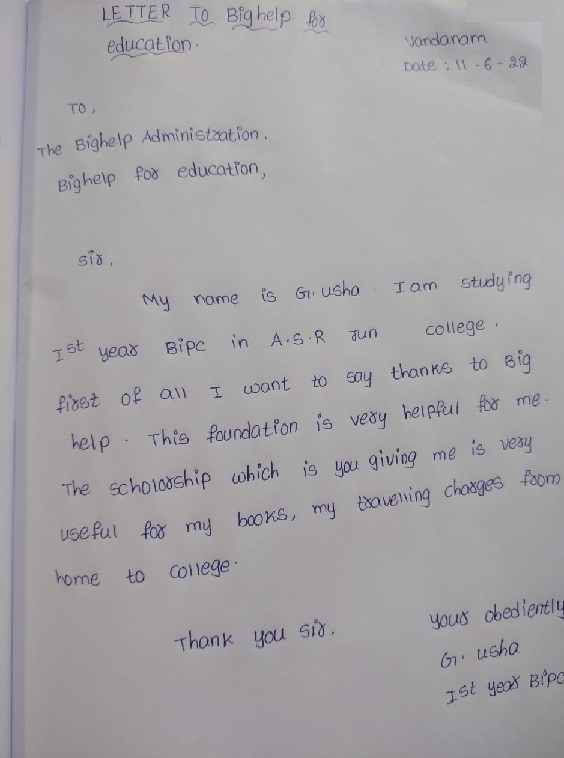 LETTER TO Bighelp for
education.
Vandanam
Date : 11-6-22
TO,
The Bighelp Administration.
Bighelp for education,
sir,
My name is G. usha. I am studying
Ist year Bipc in A.S.R Jun college.
first of all I want to say thanks to Big
help. This foundation is very helpful for me.
The scholorship which is you giving me is very
useful for my books, my travelling charges from
home to college.
Thank you sir.
your obediently
G. usha
Ist year Bipc